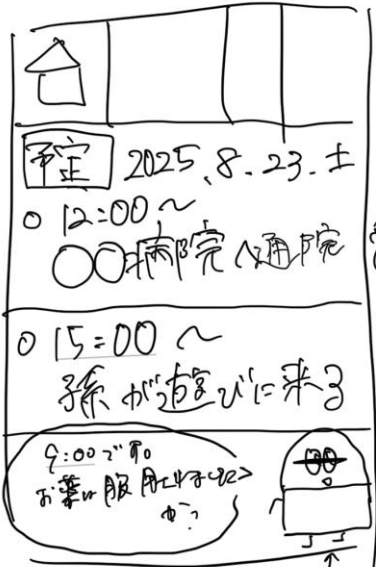 予定 2025.8.23.土
○ 12:00〜
○○病院へ通院
○ 15:00〜
孫が遊びに来る
9:00です。
お薬は服用しましたか?